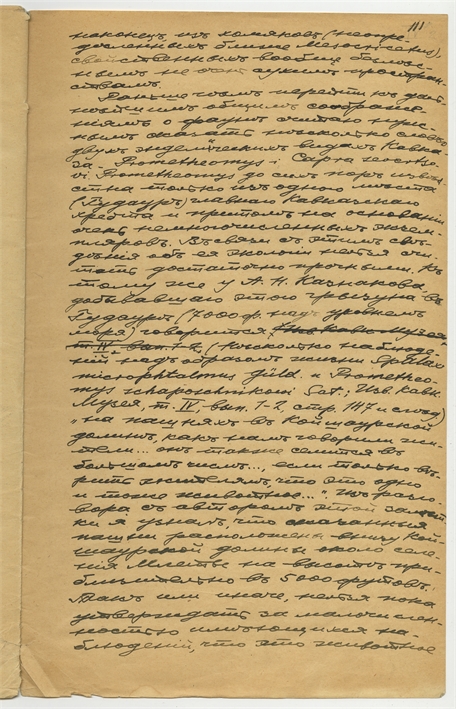 111
наконецъ изъ хомяковъ (неопре-
дѣленныхъ ближе Mesocricetus),
свойственныхъ вообще больш-
нымъ не очень сухимъ простран-
ствамъ.
Раньше чѣмъ перейти къ даль-
нѣйшимъ общимъ соображе-
ніямъ о фаунѣ считаю нуж-
нымъ сказать нѣсколько словъ о
двухъ эндемическихъ видахъ Кавка-
за - Prometheomys и Capra
Prometheomys до сихъ поръ извѣ-
стна только изъ одного мѣста
(Гудауръ) главнаго Кавказскаго
хребта и притомъ на основаніи
очень немногочисленныхъ экзем-
пляровъ. Въ связи съ этимъ свѣ-
дѣнія объ ея экологіи нельзя счи-
тать достаточно прочными. Къ
тому же у А. Н. Казнакова,
добывавшаго этого грызуна въ
Гудаурѣ (7000 ф. надъ уровнемъ
моря) говорится,
т. IV, вып. 1-2, (Нѣсколько наблюде-
ній надъ образомъ жизни Spalax
microphtalmus Güld. и Prometheo-
mys schaposchnikowi Sat.; Изв. Кавк.
Музея, т. IV, вып. 1-2, стр. 147 и слѣд.)
"на пашняхъ въ Койшаурской
долинѣ, какъ намъ говорили жи-
тели... онъ также селится въ
большомъ числѣ..., если только вѣ-
рить жителямъ, что это одно
и тоже животное...". Изъ разго-
вора съ авторомъ этой замѣт-
ки я узналъ, что сказанныя
пашни расположены внизу Кой-
шаурской долины около селе-
нія Млеты на высотѣ при-
близительно въ 5000 футовъ.
Такъ или иначе, нельзя пока
утверждать за малочислен-
ностью имѣющихся на-
блюденій, что это животное